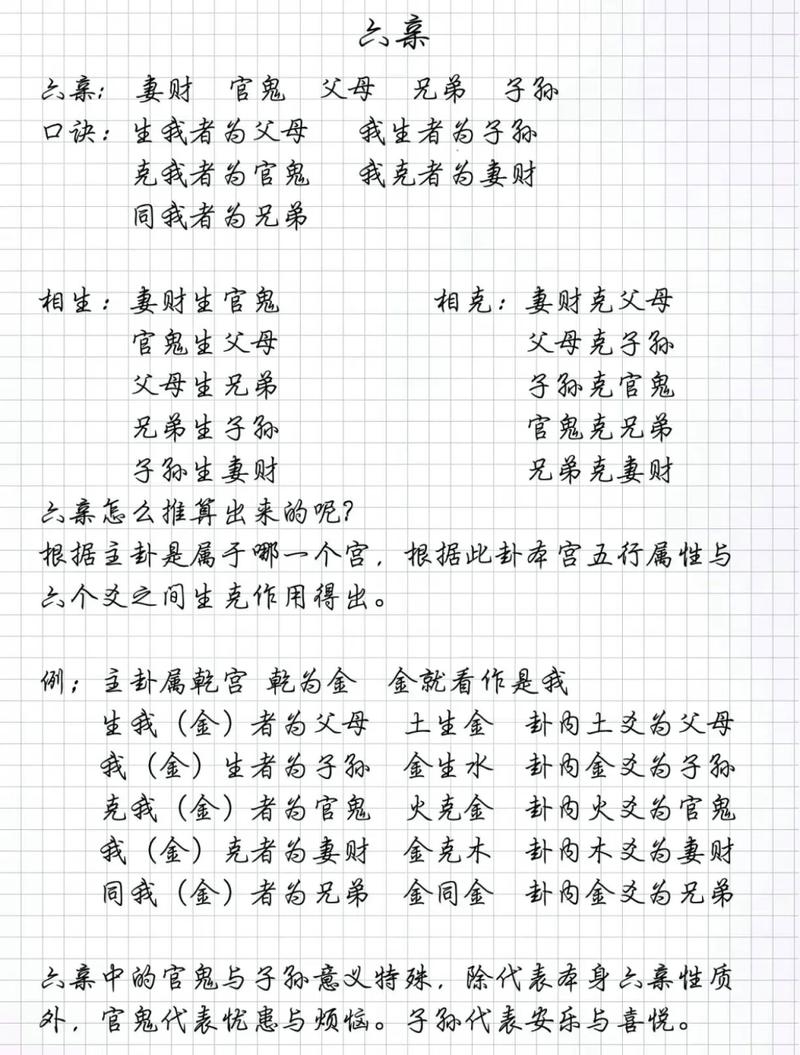 六亲
六亲: 妻财 官鬼 父母 兄弟 子孙
口诀: 生我者为父母 我生者为子孙
克我者为官鬼 我克者为妻财
同我者为兄弟
相生: 妻财生官鬼 相克: 妻财克父母
官鬼生父母 父母克子孙
父母生兄弟 子孙克官鬼
兄弟生子孙 官鬼克兄弟
子孙生妻财 兄弟克妻财
六亲怎么推算出来的呢?
根据主卦是属于哪一个宫,根据此卦本宫五行属性与
六个爻之间生克作用得出。
例; 主卦属乾宫 乾为金 金就看作是我
生我(金)者为父母 土生金 卦内土爻为父母
我(金)生者为子孙 金生水 卦内金爻为子孙
克我(金)者为官鬼 火克金 卦内火爻为官鬼
我(金)克者为妻财 金克木 卦内木爻为妻财
同我(金)者为兄弟 金同金 卦内金爻为兄弟
六亲中的官鬼与子孙意义特殊,除代表本身六亲性质
外,官鬼代表忧患与烦恼。子孙代表安乐与喜悦。